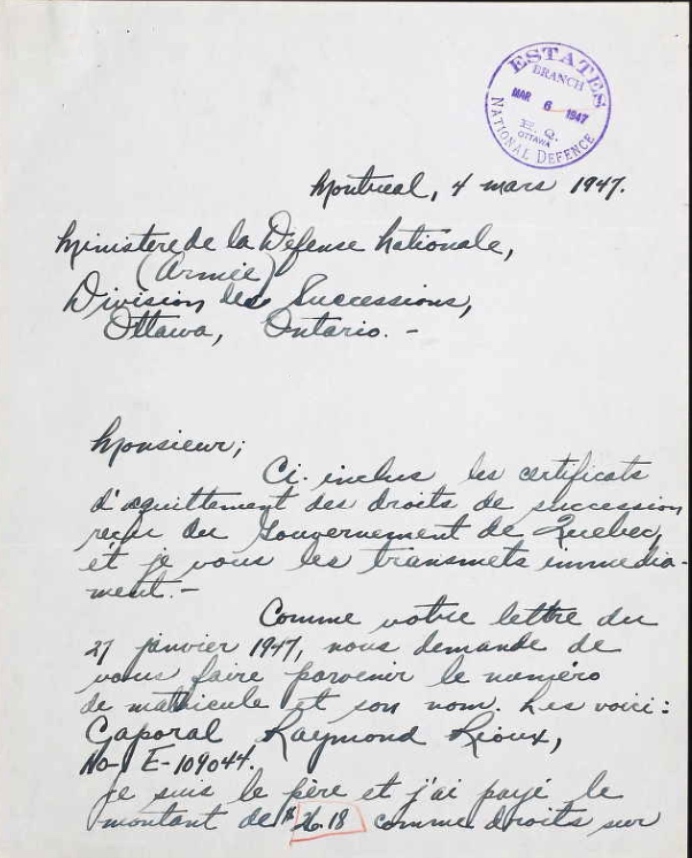 ESTATES
BRANCH
MAR 6 1947
H. Q.
OTTAWA
NATIONAL DEFENCE
Montreal, 4 mars 1947.
Ministere de la Défense Nationale,
(Armée)
Division des Successions,
Ottawa, Ontario. -
Monsieur;
Ci. inclus les certificats
d'aquittement des droits de succession
reçu du Gouvernement de Quebec,
et je vous les transmets immédia-
ment. -
Comme votre lettre du
27 janvier 1947, nous demande de
vous faire parvenir le numéro
de matricule et son nom. Les voici:
Caporal Raymond Rioux,
No- E-109044.
je suis le père et j'ai payé le
montant de $26.18 comme droits sur